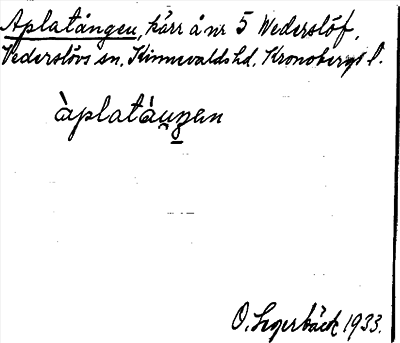 Aplatången, kärr å nr 5 Wederslöf,
Vederslövs sn, Kinnevalds hd, Kronobergs l.
àplatáŋen
O. Segerbäck 1933.